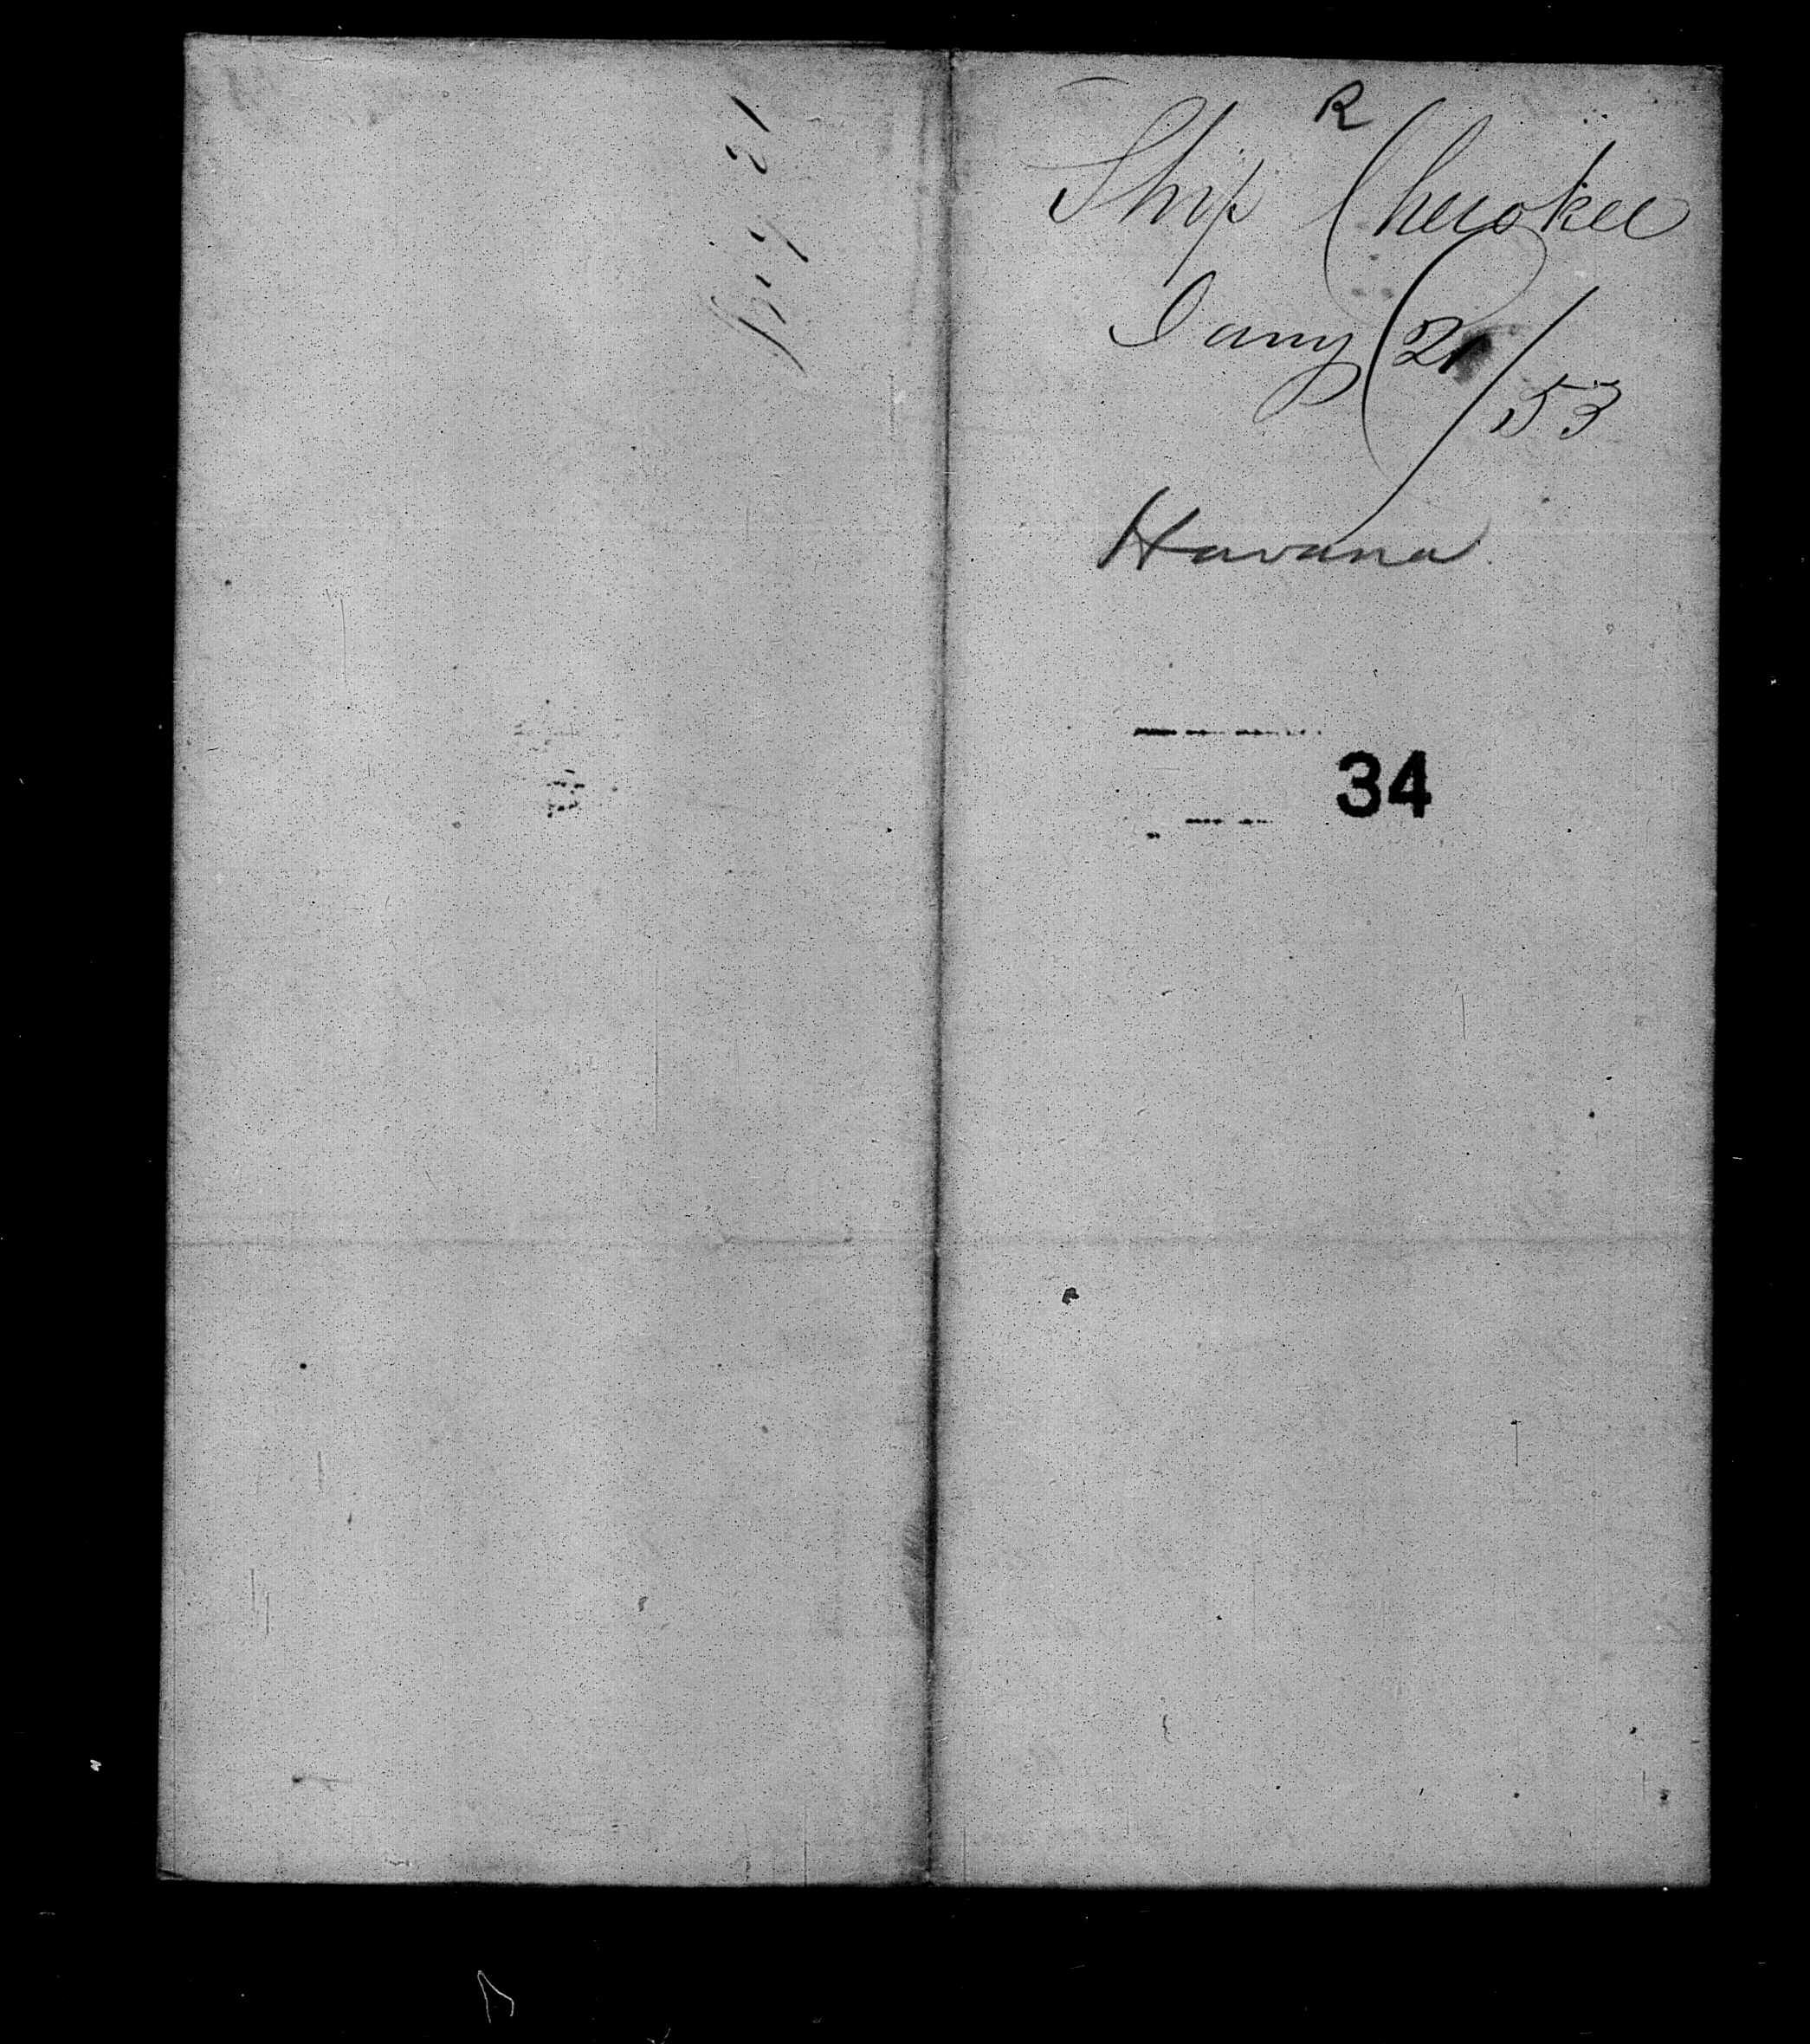 R
Ship Cherokee
Jany 21/53
Havana
34